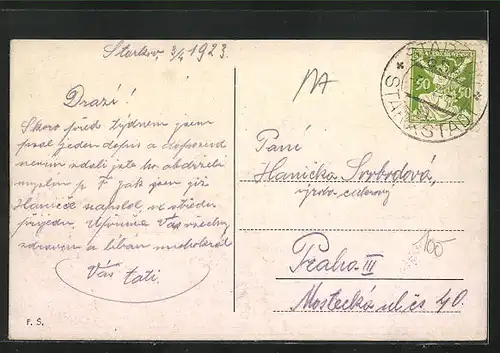 Starkov, 3/4 1923.
Drazí!
Skoro před týdnem jsem
psal jeden dopis a doposud
nevím zdali jste ho obdrželi
myslím p. F. jak jsem již
Haničce napsal ve středu
přijedu. Upřímně Vás všechny
zdravím a líbám mnohokrát
Váš tati.
F. S.
50 50
STARKOV
STARKSTADT
Paní
Hanička Svobodová,
výroba cukrovy
Praha III
Mostecká ulič 40.
100